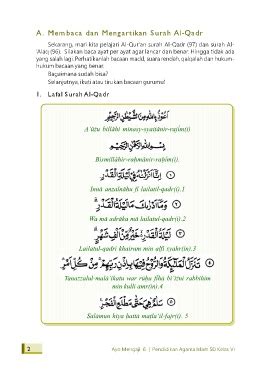 A. Membaca dan Mengartikan Surah Al-Qadr
Sekarang, mari kita pelajari Al-Qur'an surah Al-Qadr (97) dan surah Al-
'Alaq (96). Silakan baca ayat per ayat agar lancar dan benar. Hingga tidak ada
yang salah lagi. Perhatikanlah bacaan madd, suara rendah, qalqalah dan hukum-
hukum bacaan yang benar.
Bagaimana sudah bisa?
Selanjutnya, ikuti atau tirukan bacaan gurumu!
1. Lafal Surah Al-Qadr
اَعُوْذُ بِاللهِ مِنَ الشَّيْطٰنِ الرَّجِيْمِ
A'ūżu billāhi minasy-syaiṭānir-rajīm(i)
بِسْمِ اللهِ الرَّحْمٰنِ الرَّحِيْمِ
Bismillāhir-raḥmānir-raḥīm(i).
اِنَّآ اَنْزَلْنٰهُ فِيْ لَيْلَةِ الْقَدْرِ ١
Innā anzalnāhu fī lailatil-qadr(i).1
وَمَآ اَدْرٰىكَ مَا لَيْلَةُ الْقَدْرِ ٢
Wa mā adrāka mā lailatul-qadr(i).2
لَيْلَةُ الْقَدْرِ خَيْرٌ مِّنْ اَلْفِ شَهْرٍ ٣
Lailatul-qadri khairum min alfi syahr(in).3
تَنَزَّلُ الْمَلٰۤىِٕكَةُ وَالرُّوْحُ فِيْهَا بِاِذْنِ رَبِّهِمْ مِنْ كُلِّ اَمْرٍ ٤
Tanazzalul-malā'ikatu war rūḥu fīhā bi'iżni rabbihim
min kulli amr(in).4
سَلٰمٌ هِيَ حَتّٰى مَطْلَعِ الْفَجْرِ ٥
Salāmun hiya ḥattā maṭla'il-fajr(i). 5
2 Ayo Mengaji 6 | Pendidikan Agama Islam SD Kelas VI